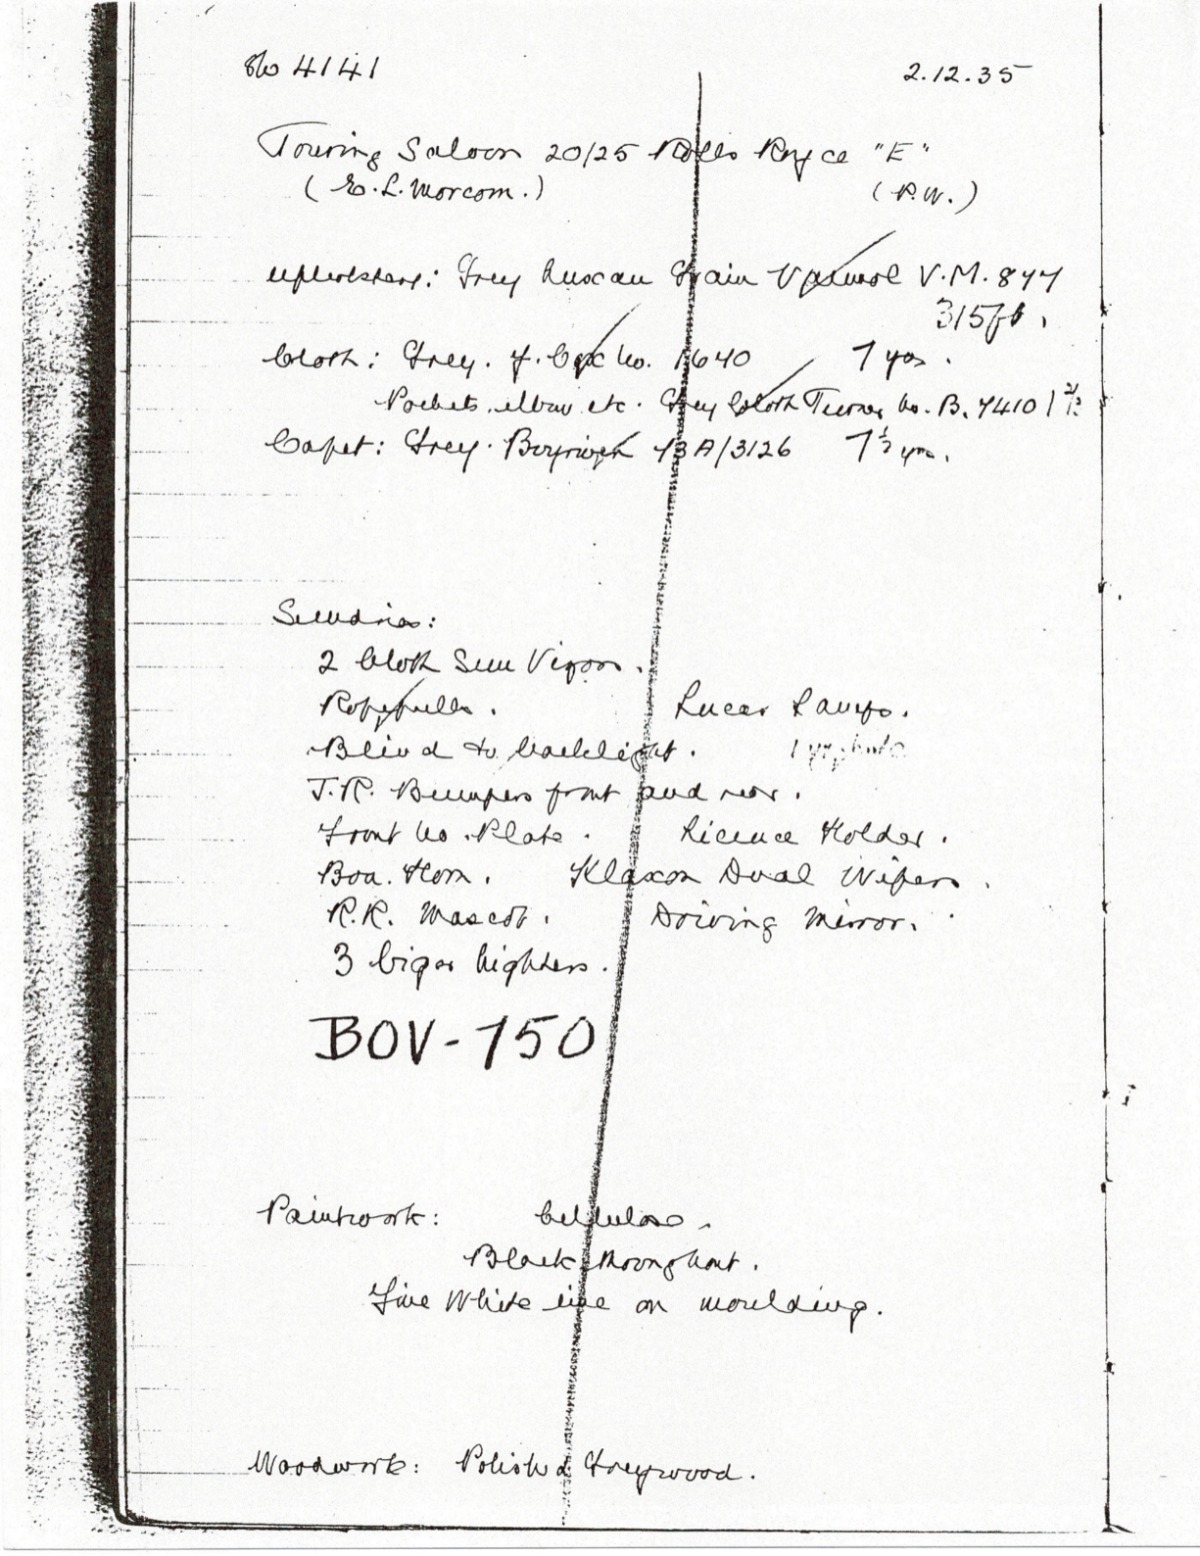 4141 2.12.35
Touring Saloon 20/25 Rolls Royce "E"
(E.L. Morcom.) (P.W.)
Upholstery: Grey Luxan Grain Vaumol V.M. 877
315ft.
Cloth: Grey. J. Cox No. 1640 7 yds.
Pockets, elbow etc. Grey Cloth Turner No. B. 7410
Carpet: Grey. 13A/3126 7½ yds.
Sundries:
2 Cloth Sun Visors.
Ropepulls. Lucas Lamps.
Blind to backlight.
T.R. Bumpers front and rear.
Front No. Plate. Licence Holder.
Boa. Horn. Klaxon Dual Wipers.
R.R. Mascot. Driving Mirror.
3 Cigar Lighters.
BOV-750
Paintwork: Cellulose.
Black throughout.
Fine White line on moulding.
Woodwork: Polished Greywood.